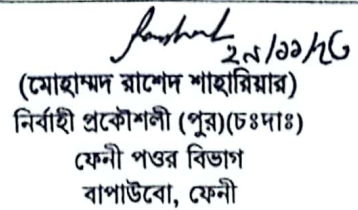 (মোহাম্মদ রাশেদ শাহারিয়ার)
নির্বাহী প্রকৌশলী (পুর)(চঃদাঃ)
ফেনী পওর বিভাগ
বাপাউবো, ফেনী